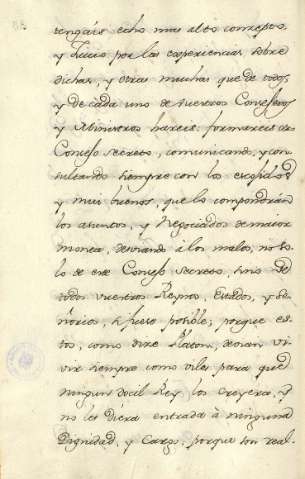 tengais echo mas alto concepto,
y Juicio por las experiencias sobre
dichas, y otras muchas que de todos,
y de cada uno de vuestros Consejeros
y Ministros hareis, formareis el
Consejo secreto, comunicando, y con
sultando siempre con los escojidos
y mui buenos, que lo compondran
los asuntos, y Negociados de maior
monta, desviando à los malos, no so
lo de ese Consejo secreto, sino de
todos vuestros Reynos, Estados, y Se
ñorios, si fuese posible; porque es
tos, como dice Platon, devian vi
vir siempre como viles para que
ningun docil Rey los creyera, y
no les diera entrada à ninguna
Dignidad, y Cargo, porque son real-